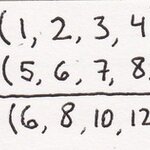 (1, 2, 3, 4
(5, 6, 7, 8.
(6, 8, 10, 12